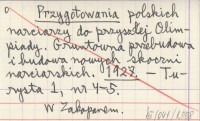 Przygotowania polskich
narciarzy do przyszłej Olim-
piady. Gruntowna przebudowa
i budowa nowych skoczni
narciarskich. 1927. – Tu-
rysta 1, nr 4-5.
W Zakopanem.